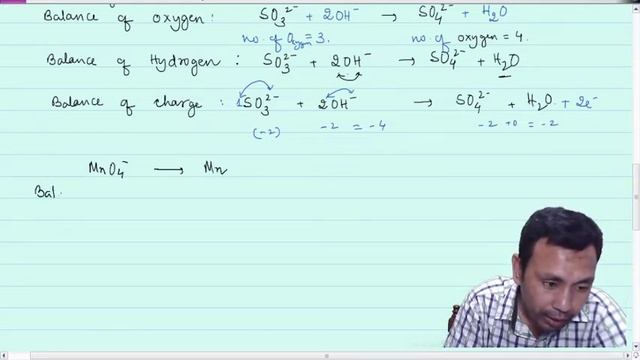 Balance of oxygen : SO₃²⁻ + 2OH⁻ → SO₄²⁻ + H₂O
no. of Oxygen = 3. no. of oxygen = 4.
Balance of Hydrogen : SO₃²⁻ + 2OH⁻ → SO₄²⁻ + H₂O
Balance of charge : SO₃²⁻ + 2OH⁻ → SO₄²⁻ + H₂O + 2e⁻
(-2) -2 = -4 -2 +0 = -2
MnO₄⁻ → Mn
Bal.